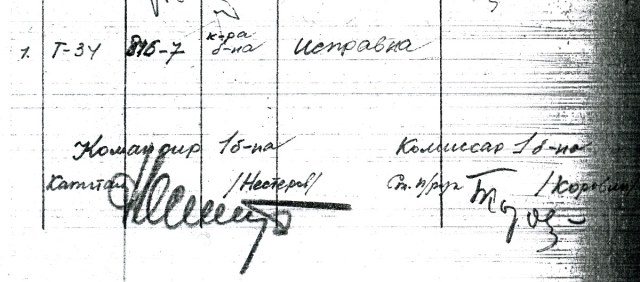 1. Т-34 816-7 к-ра б-на Исправна
Командир 1 б-на Комиссар 1 б-на
Капитан /Нестеров/ Ст. п/рук /Коровин/